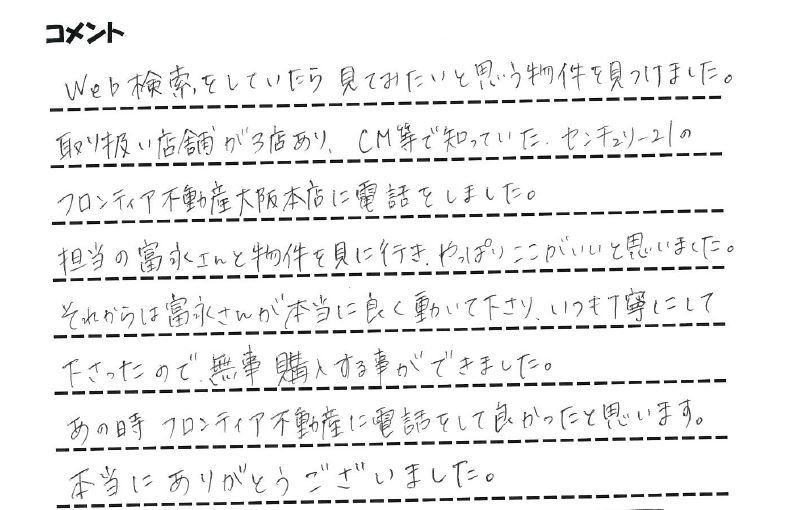 コメント
Web検索をしていたら見てみたいと思う物件を見つけました。
取り扱い店舗が3店あり、CM等で知っていた、センチュリー21の
フロンティア不動産大阪本店に電話をしました。
担当の富永さんと物件を見に行き、やっぱりここがいいと思いました。
それからは富永さんが本当に良く動いて下さり、いつも丁寧にして
下さったので、無事購入する事ができました。
あの時フロンティア不動産に電話をして良かったと思います。
本当にありがとうございました。